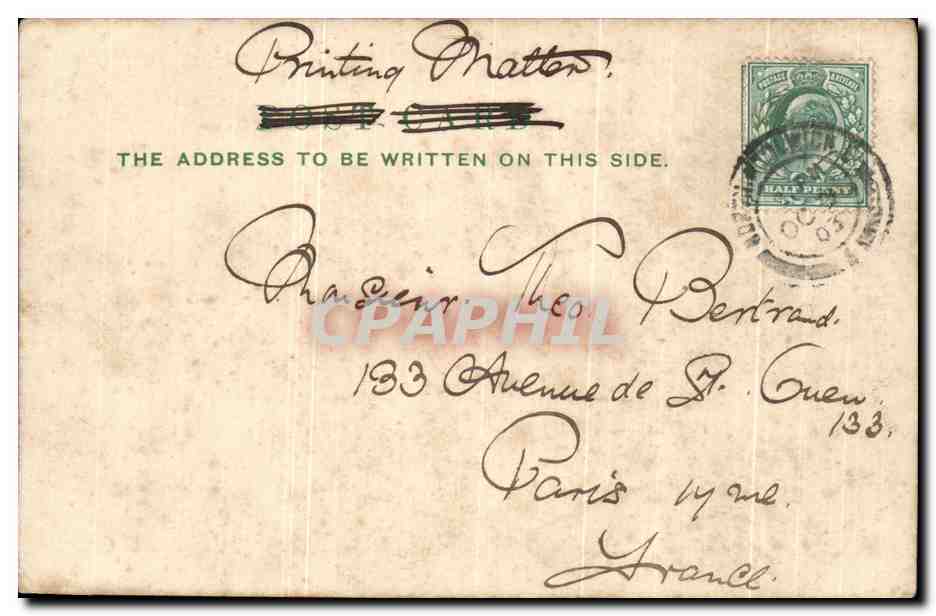 Printing Matter.
POST CARD
THE ADDRESS TO BE WRITTEN ON THIS SIDE.
POSTAGE & REVENUE
HALF PENNY
OC
03
Monsieur. Theo. Bertrand.
CPAPHIL
133 Avenue de St. Ouen.
133.
Paris 17me.
France.